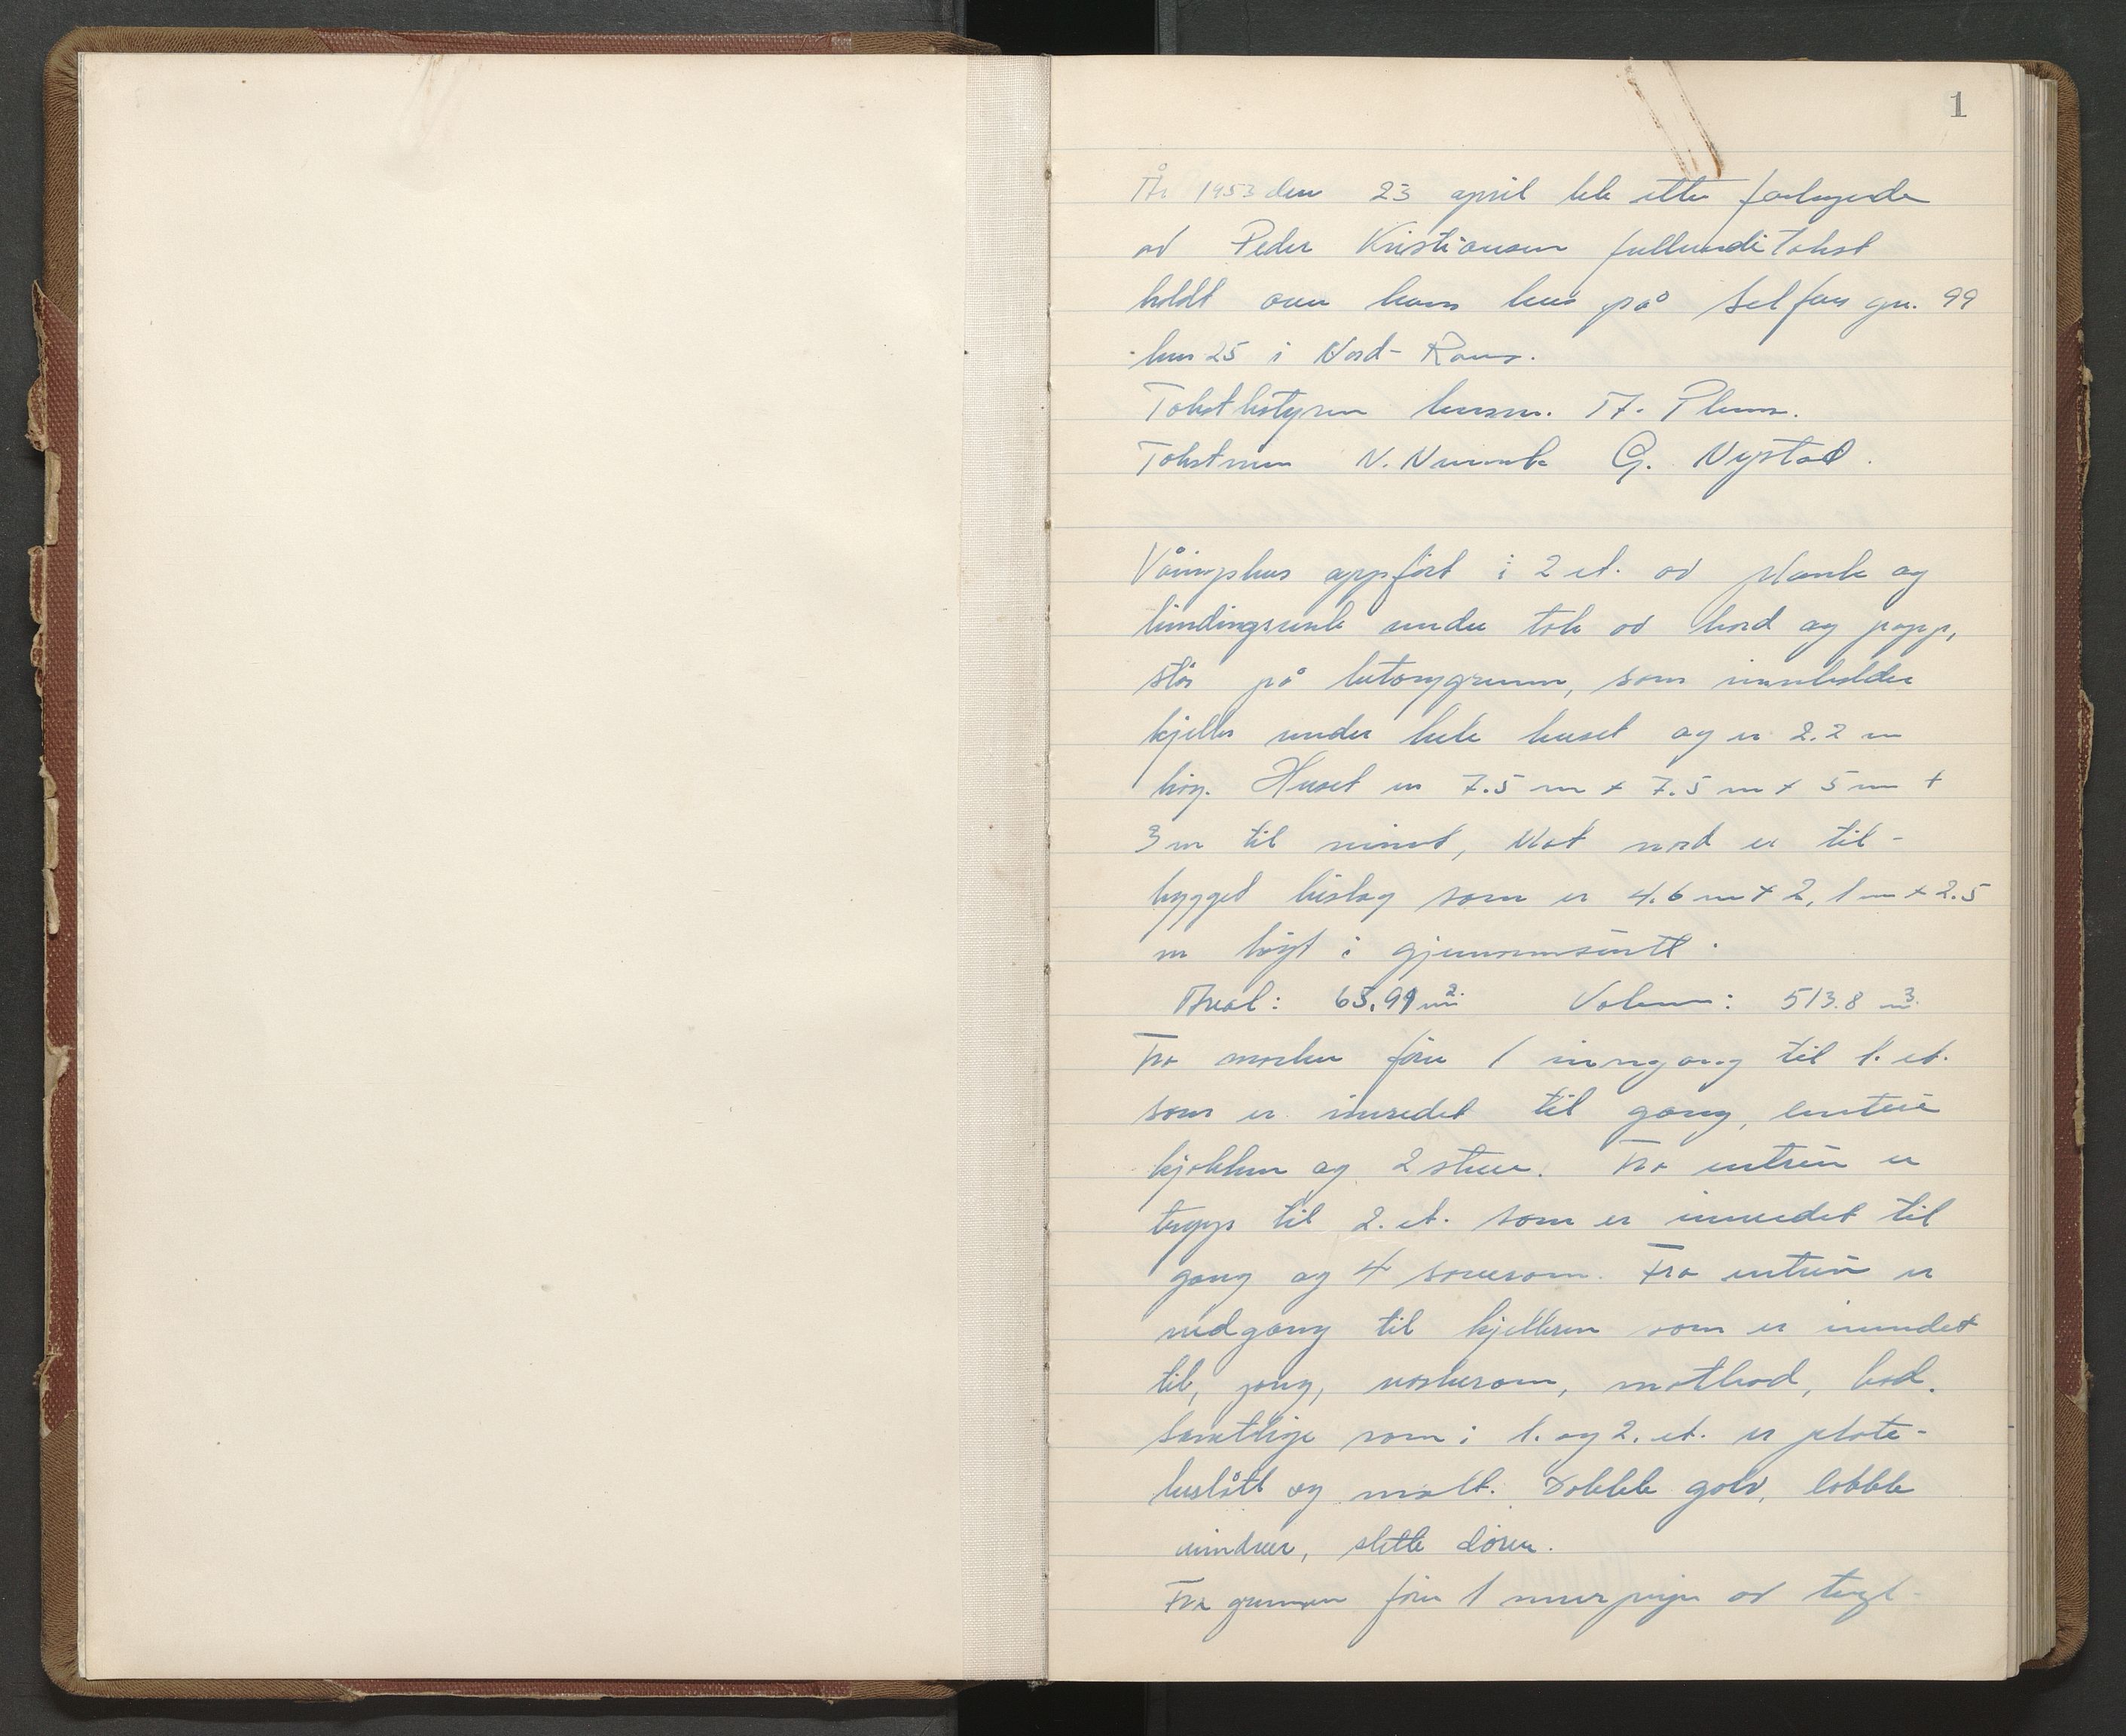 1
År 1953 den 23 april ble etter forlangende
av Peder Kristiansen fullverdi takst
holdt over hans hus på Selfors gn. 99
bnr 25 i Nord-Rana.
Takstbestyrer lensm. A. Plum.
Takstmen N. G. Nystad.
Våningshus oppfört i 2 et. av plank og
bindingsverk under tak av bord og papp,
står på betongrunn, som innholder
kjeller under hele huset og er 2.2 m
høg. Huset er 7.5 m x 7.5 m x 5 m +
3 m til mønet, Mot nord er til-
bygget bislag som er 4.6 m x 2,1 m x 2.5
m høgt i gjennomsnitt.
Areal: 65,91 m2. Volum: 513.8 m3.
Fra marken fører 1 inngang til 1. et.
som er innredet til gang, entreé
kjøkken og 2 stuer. Fra entréen er
trapp til 2. et. som er innredet til
gang og 4 soverom. Fra entréen er
nedgang til kjelleren som er innredet
til, gang, vaskerom, matbod, bod.
Samtlige rom i 1. og 2. et. er plate-
beslått og malt. Dobble golv, dobble
vinduer, slette dører.
Fra grunnen fører 1 murpipe av tegl-